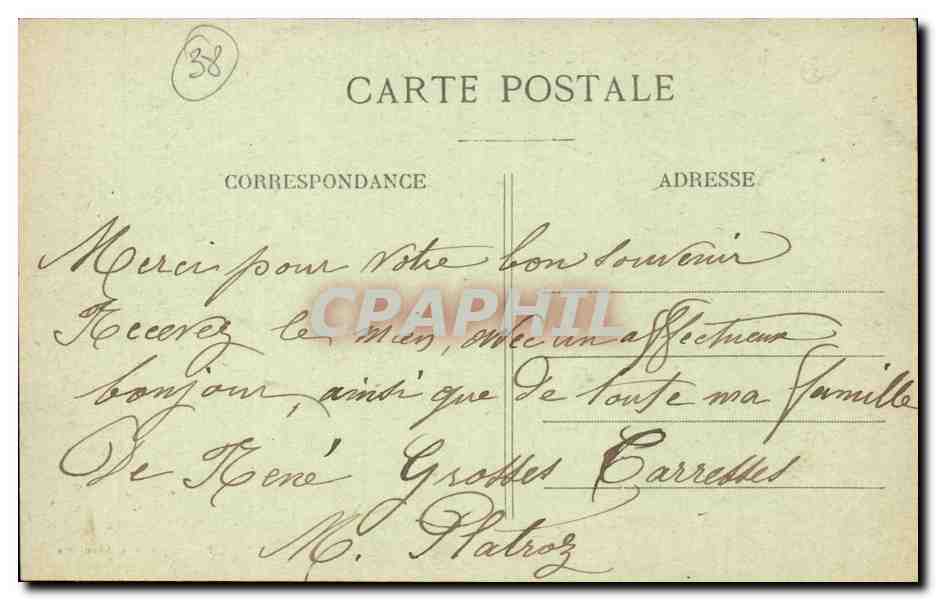 38
CARTE POSTALE
CORRESPONDANCE
ADRESSE
Merci pour votre bon souvenir
CPAPHIL
Recevez le mien, avec un affectueux
bonjour, ainsi que de toute ma famille
De René Grosses Carresses
M. Platroz